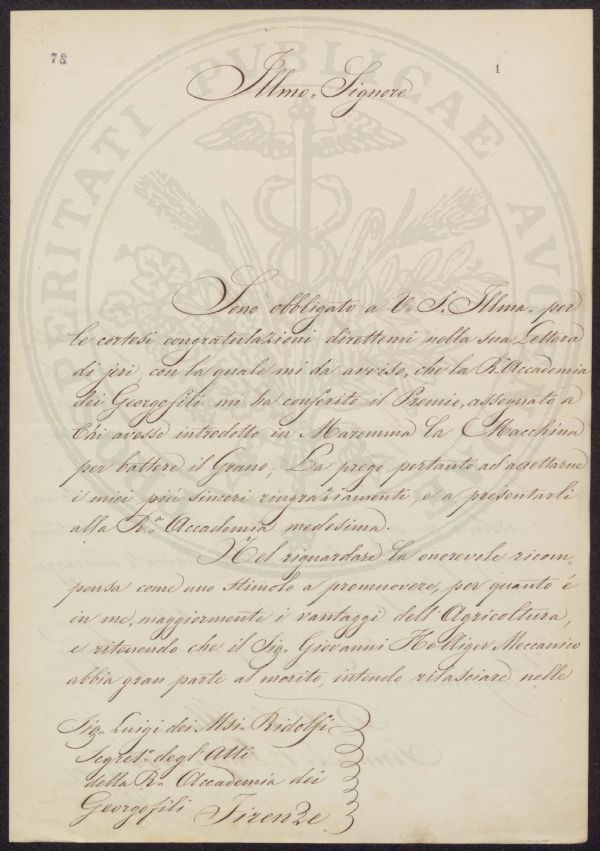 78
1
Illmo. Signore
Sono obbligato a V. S. Illma. per
le cortesi congratulazioni direttemi nella sua Lettera
di jeri con la quale mi dà avviso, che la R. Accademia
dei Georgofili mi ha conferito il Premio, assegnato a
Chi avesse introdotto in Maremma la Macchina
per battere il Grano; La prego pertanto ad accettarne
i miei più sinceri ringraziamenti, e a presentarli
alla Ra. Accademia medesima.
Nel riguardare la onorevole ricom-
pensa come uno stimolo a promuovere, per quanto è
in me, maggiormente i vantaggi dell'Agricoltura,
e ritenendo che il Sig. Giovanni Holliger Meccanico
abbia gran parte al merito, intendo rilasciare nelle
Sig. Luigi dei Msi. Ridolfi
Segret. degl'Atti
della Ra. Accademia dei
Georgofili Firenze